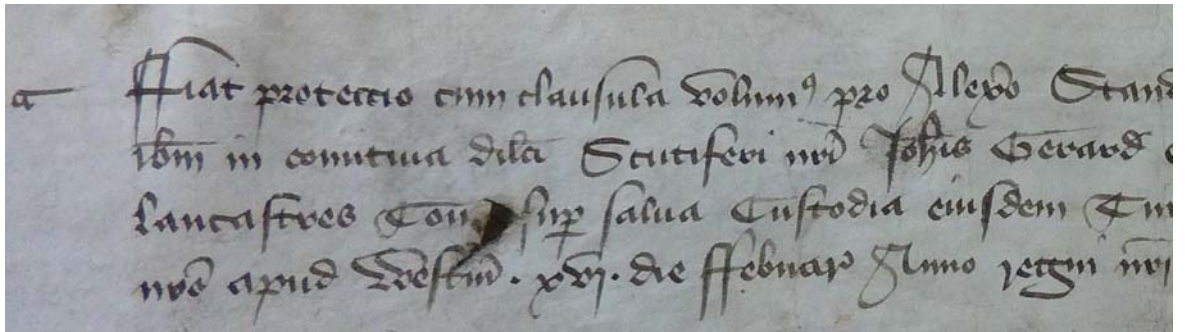 a ffiat proteccio cum clausula volum9 pro Alexo Stand
ibm in comitiua dilci Scutiferi nri Joħis Gerard
lancastres Com sup salua Custodia eiusdem
nro apud Westm . xvj . die ffebruar Anno regni nri